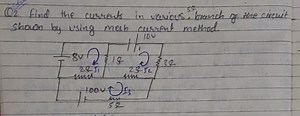 Q2 find the currents in various branch of the circuit
shown by using mesh current method.
10V
8V I1 1Ω I2 2Ω
2Ω 2Ω
100V I3
5Ω